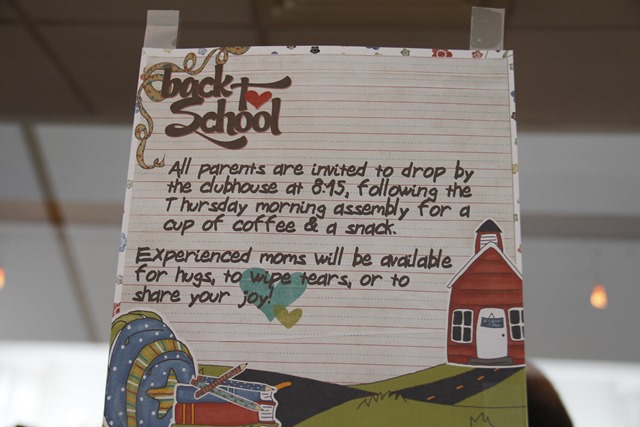 back to
School
All parents are invited to drop by
the clubhouse at 8:45, following the
Thursday morning assembly for a
cup of coffee & a snack.
Experienced moms will be available
for hugs, to wipe tears, or to
share your joy!